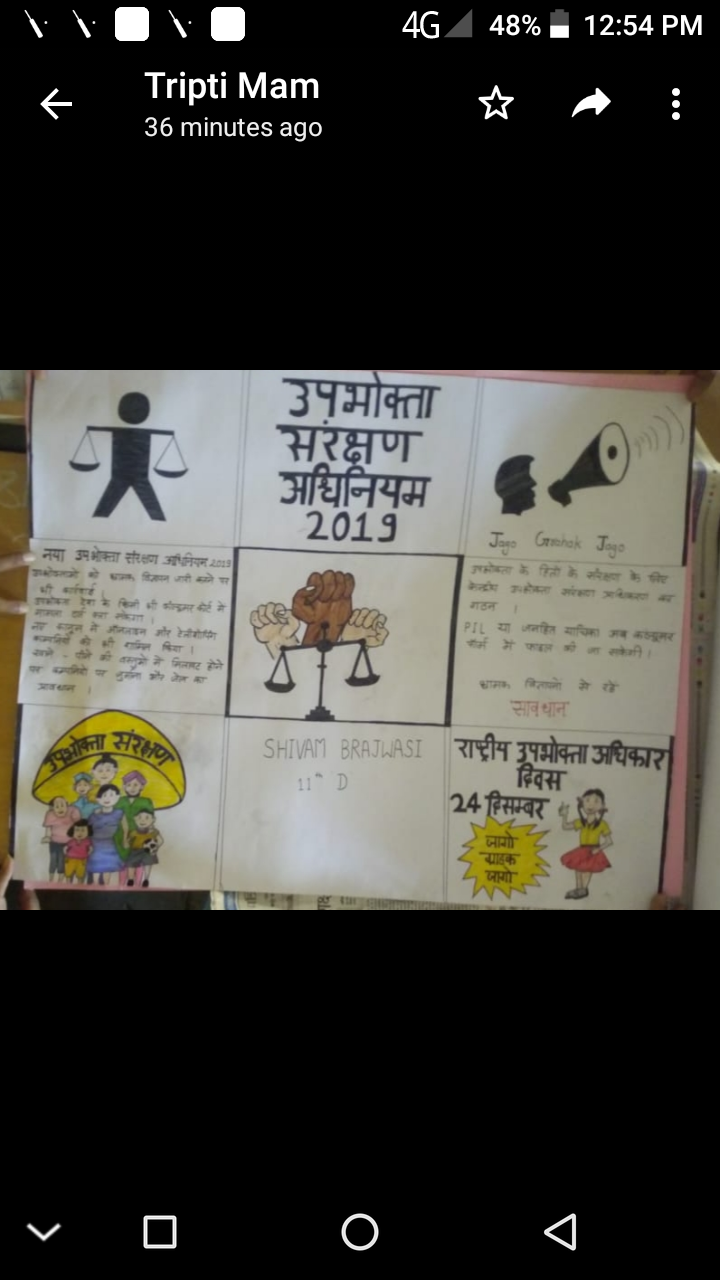 4G 48% 12:54 PM
Tripti Mam
36 minutes ago
उपभोक्ता
संरक्षण
अधिनियम
2019
Jago Grahak Jago
नया उपभोक्ता संरक्षण अधिनियम 2019
उपभोक्ताओं को भ्रामक विज्ञापन जारी करने पर
भी कार्रवाई।
उपभोक्ता देश के किसी भी कंज्यूमर कोर्ट में
मामला दर्ज करा सकेगा।
नए कानून में ऑनलाइन और टेलीशॉपिंग
कम्पनियों को भी शामिल किया।
खाने - पीने की वस्तुओं में मिलावट होने
पर कम्पनियों पर जुर्माना और जेल का
प्रावधान।
उपभोक्ता के हितों के संरक्षण के लिए
केन्द्रीय उपभोक्ता संरक्षण प्राधिकरण का
गठन ।
PIL या जनहित याचिका अब कंज्यूमर
फोर्म में फाइल की जा सकेगी।
भ्रामक से रहें
"सावधान"
उपभोक्ता संरक्षण
SHIVAM BRAJWASI
11th D
राष्ट्रीय उपभोक्ता अधिकार
दिवस
24 दिसम्बर
जागो
ग्राहक
जागो